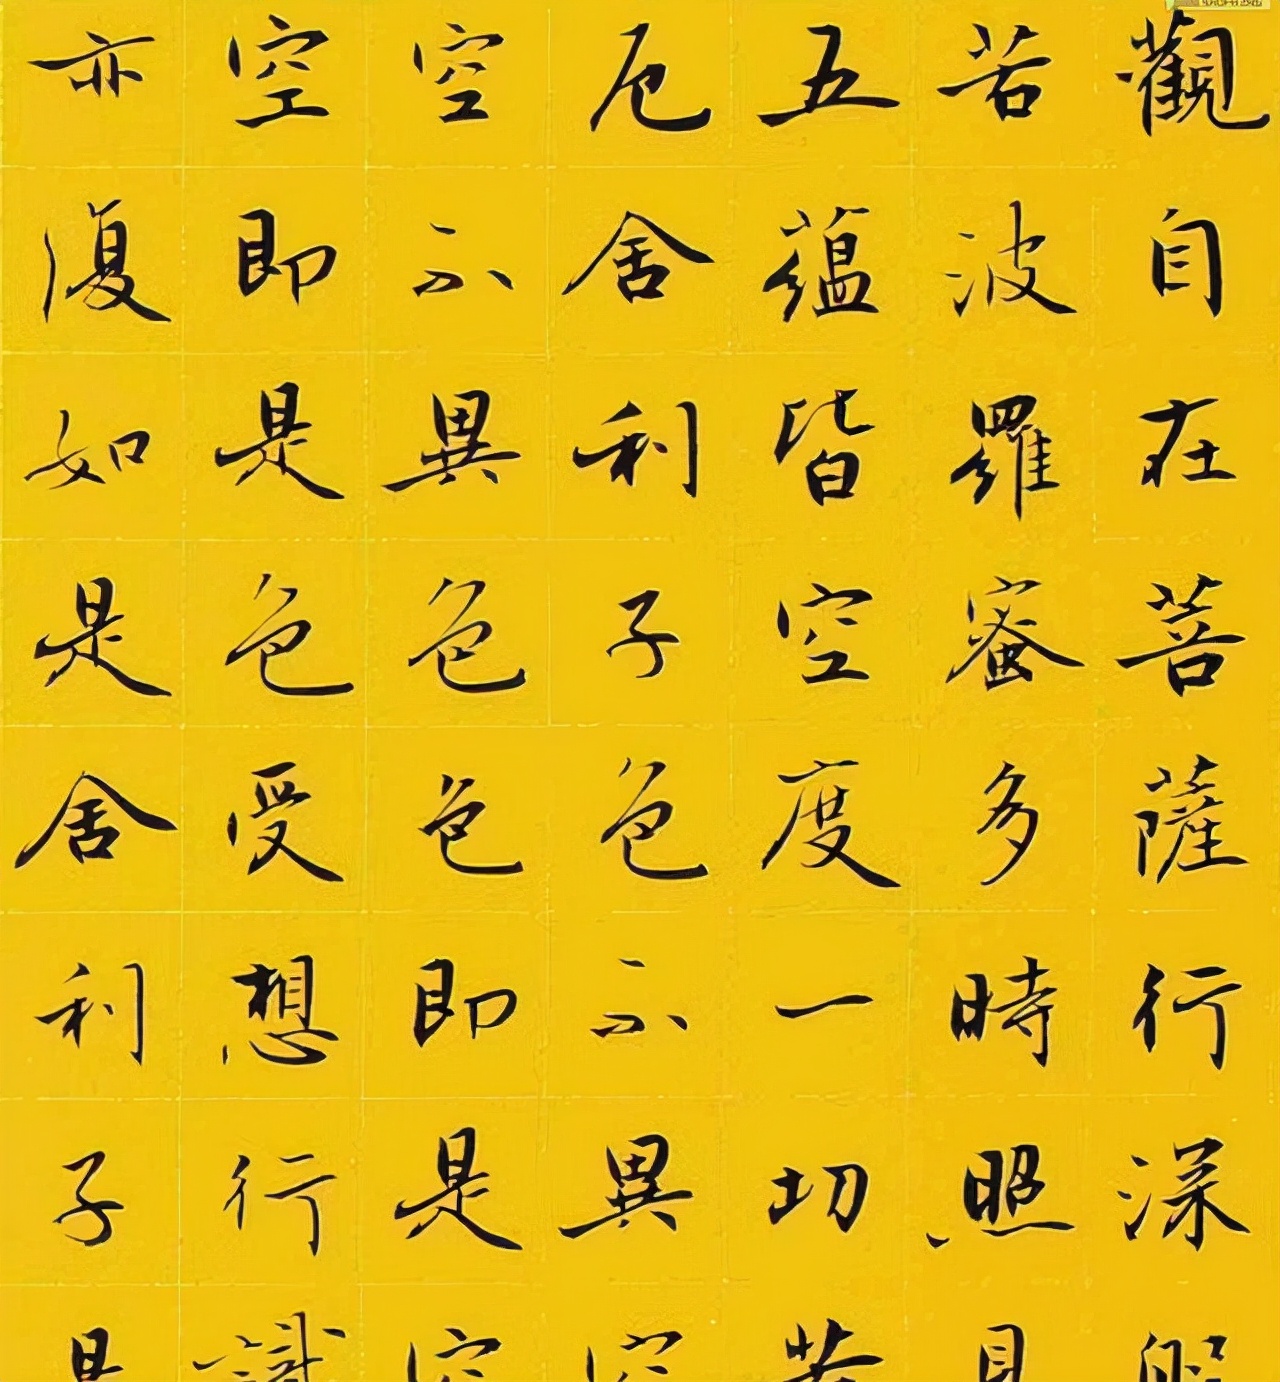 觀自在菩薩行深般
若波羅蜜多時照見
五蘊皆空度一切苦
厄舍利子色不異空
空不異色色即是空
空即是色受想行識
亦復如是舍利子是